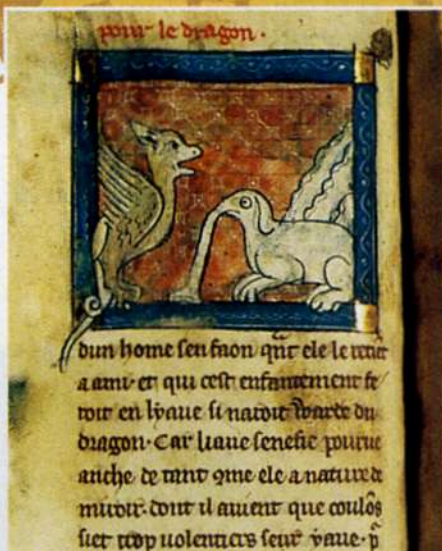 pour le dragon.
dun home sen faon qnt ele le
a ami et qui cest enfantement fe
roit en lyaue si naroit warde du
dragon. Car liaue senefie
anche de tant qme ele a nature de
miroir. dont il auient que coulōs
siet trop uolentiers seur yaue.